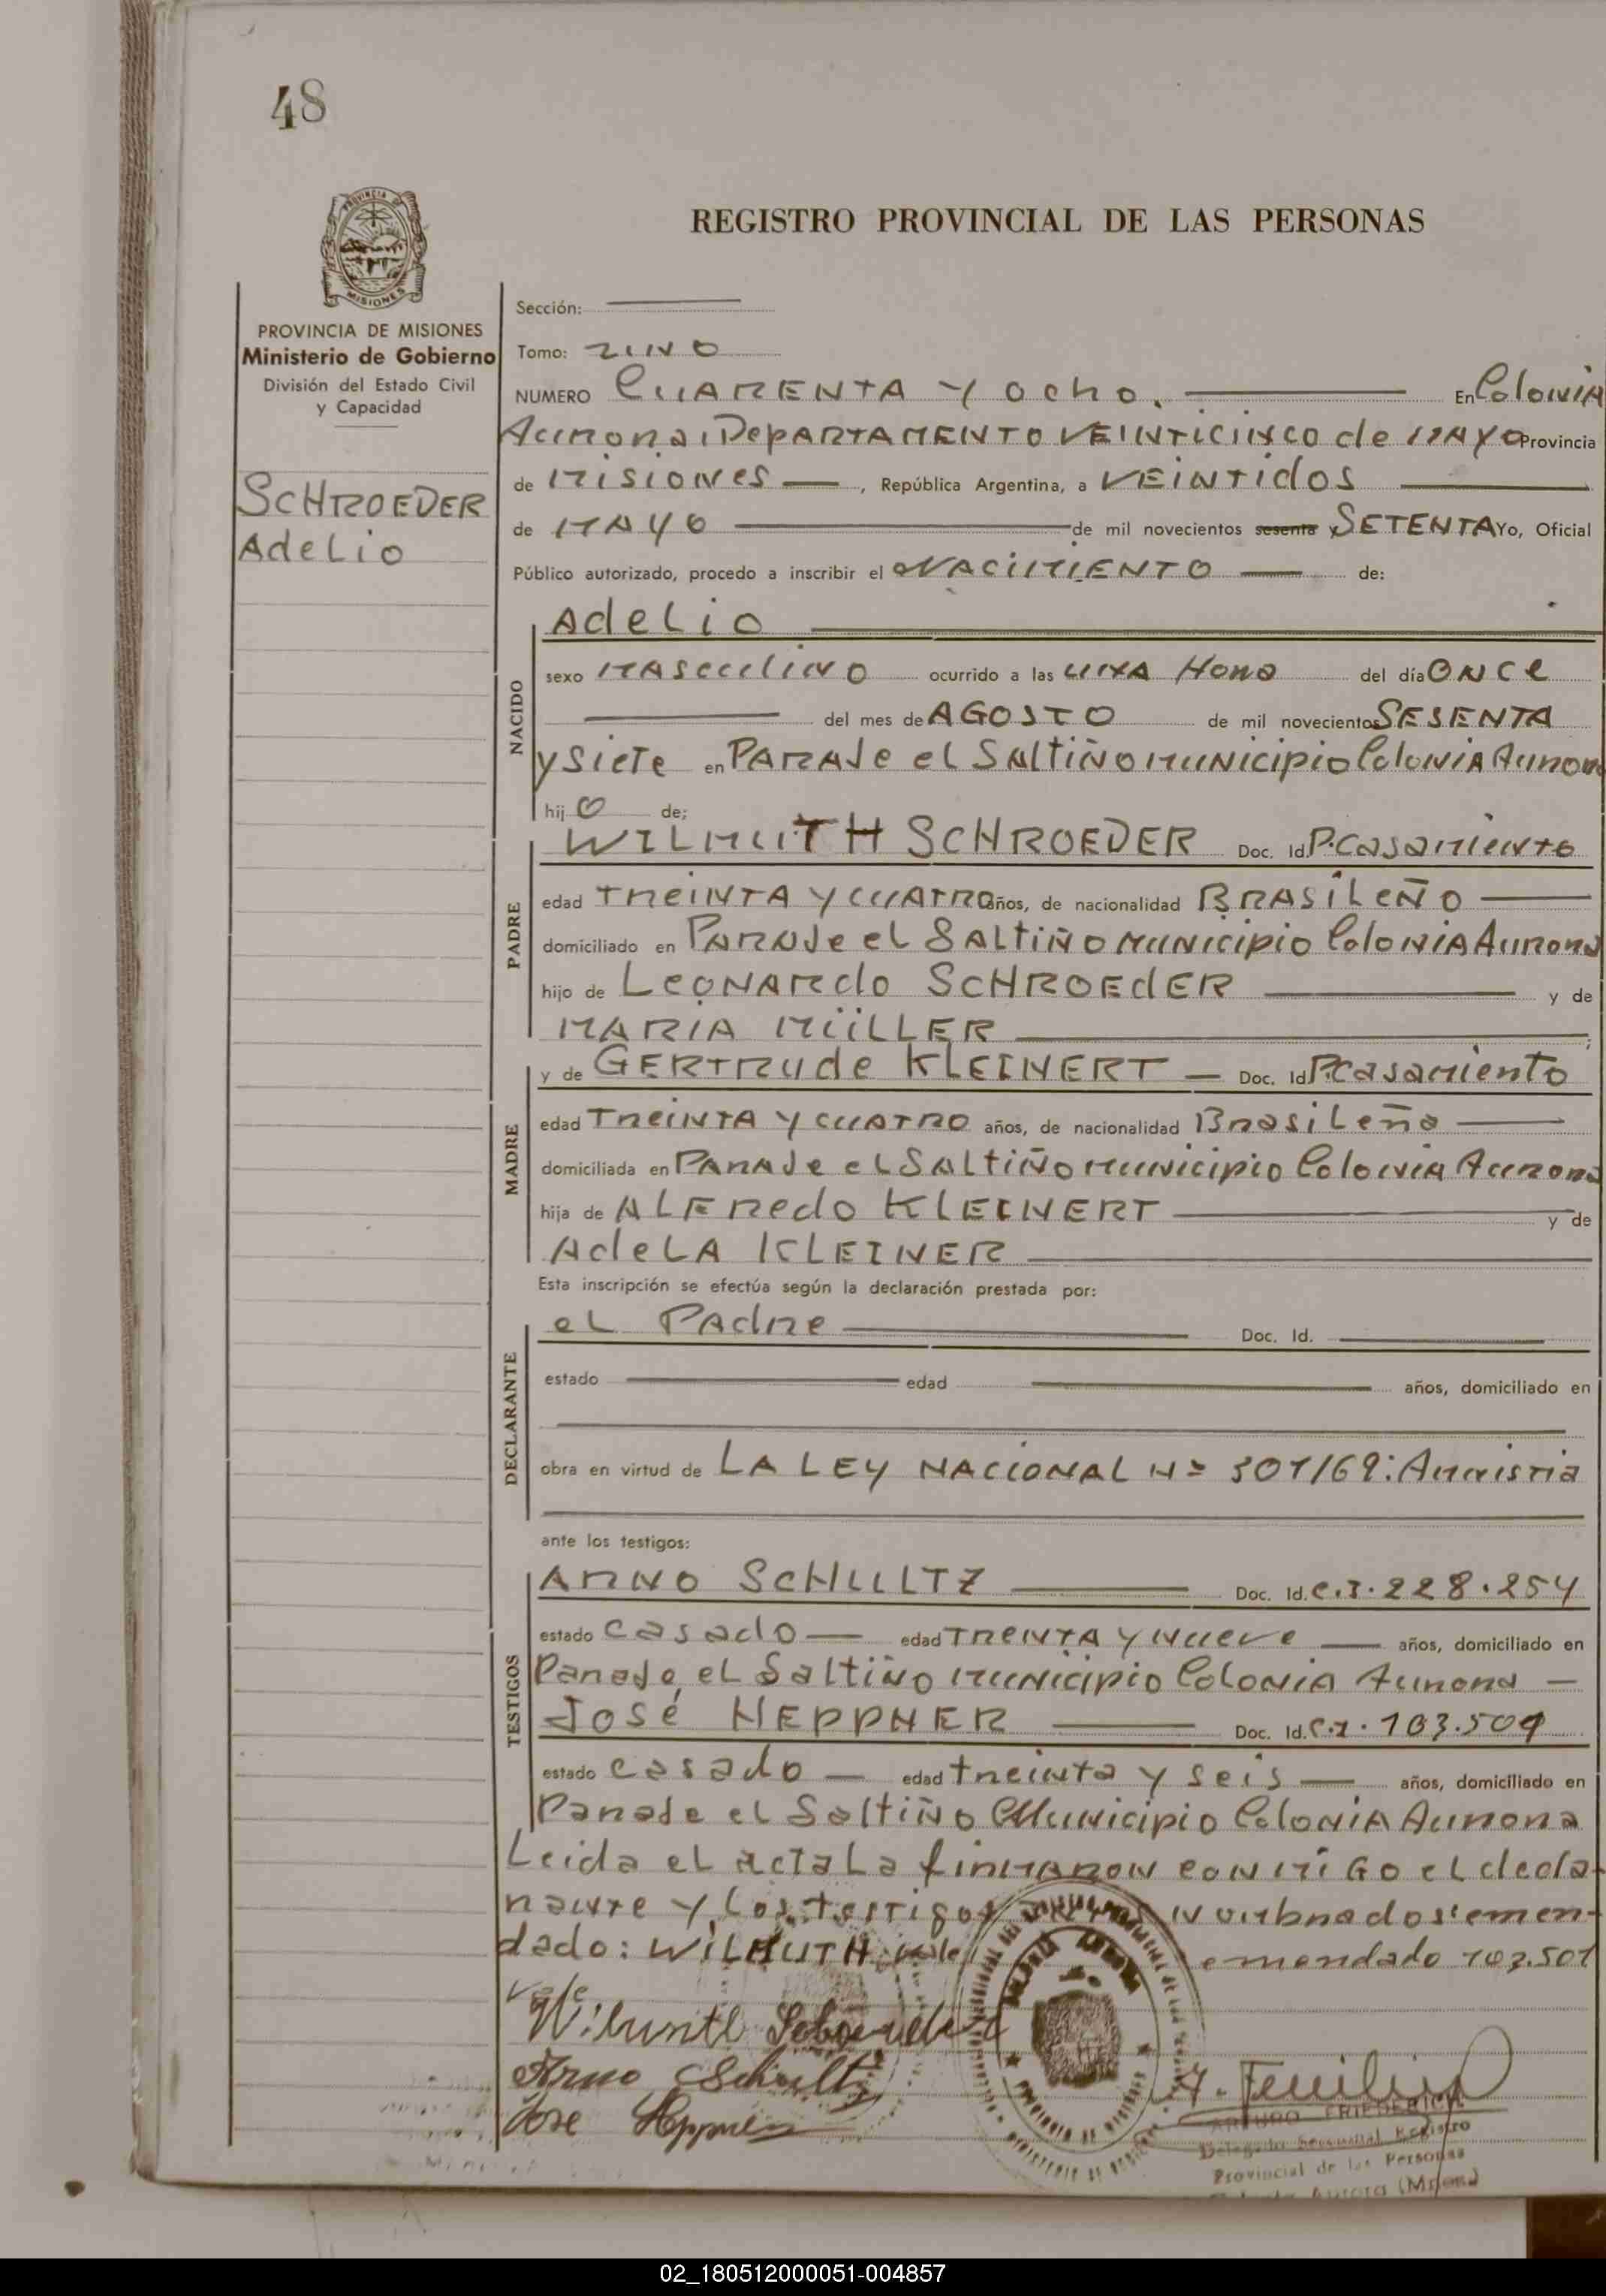 48
PROVINCIA DE
MISIONES
REGISTRO PROVINCIAL DE LAS PERSONAS
PROVINCIA DE MISIONES
Ministerio de Gobierno
División del Estado Civil
y Capacidad
SCHROEDER
Adelio
Sección:
Tomo: UNO
NUMERO CUARENTA Y Ocho. En Colonia
Aurora, DepARTAMENTO VEINTICINCO de MAYO Provincia
de Misiones, República Argentina, a VEINTIdOS
de MAYO de mil novecientos sesenta y SETENTA Yo, Oficial
Público autorizado, procedo a inscribir el NACIMIENTO de:
NACIDO
Adelio
sexo MASculiNO ocurrido a las UNA Hora del día ONCe
del mes de AGOSTO de mil novecientos SESENTA
y SieTe en PARAJe el SALTIÑO MUNICIPIO COLONIA Auror
hijo de;
PADRE
WILMUTH SCHROEDER Doc. Id. P. Casamiento
edad TREINTA Y CUATRO años, de nacionalidad BRASILEÑO
domiciliado en PARAJe el SALTIÑO MUNICIPIO COLONIA Aurora
hijo de LeONARdo SCHROEdER y de
MARIA MÜLLER ;
MADRE
y de GERTRUde KLEINERT Doc. Id. P. Casamiento
edad TREINTA Y CUATRO años, de nacionalidad BRASILEÑA
domiciliada en PARAJe el SALTIÑO MUNICIPIO COLONIA Aurora
hija de ALFRedo KLEINERT y de
AdeLA KLEINER
Esta inscripción se efectúa según la declaración prestada por:
DECLARANTE
eL PAdRe Doc. Id.
estado edad años, domiciliado en
obra en virtud de LA LEY NACIONAL Nº /69: Amnistia
ante los testigos:
TESTIGOS
ARNO SCHULTZ Doc. Id. C.I. 228.254
estado casado edad TREINTA Y NUeVe años, domiciliado en
Paraje el SALTIÑO MUNICIPIO COLONIA Aurora
José HEPPNER Doc. Id. C.I. 103.501
estado casado edad treinta y seis años, domiciliado en
Paraje el SALTIÑO Municipio COLONIA Aurora
Leida el acta La firmaron conmigo el decla-
rante y Los testigos emen-
dado: WILMUTH, vale emendado 103.501
Vale
Wilmuth Schroeder
Arno Schultz
Jose Heppner
ARTURO FRIEDERICH
Delegado Seccional Registro
Provincial de las Personas
Aurora
02_180512000051-004857